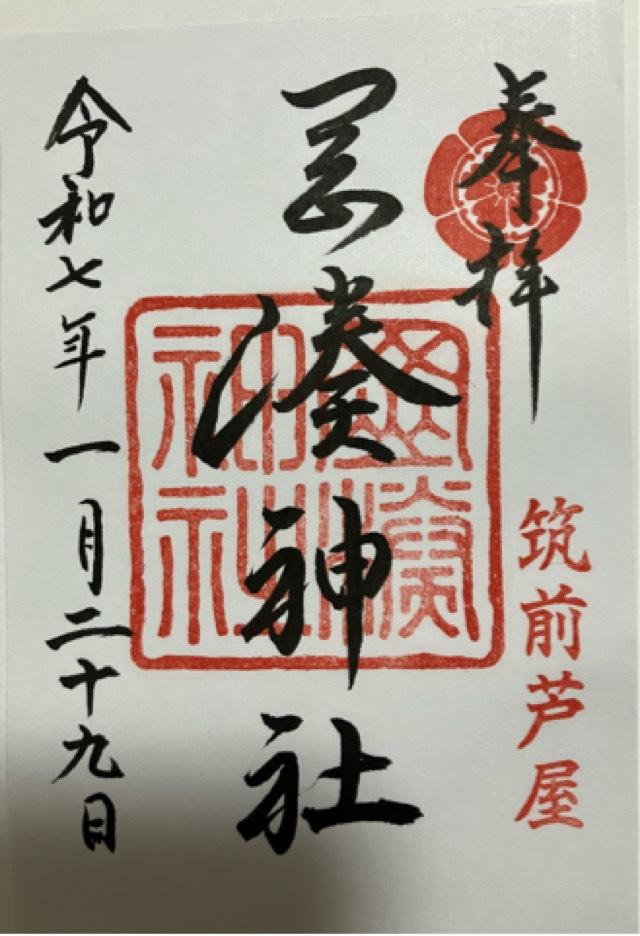 奉拝
筑前芦屋
岡湊神社
岡湊神社
令和七年一月二十九日